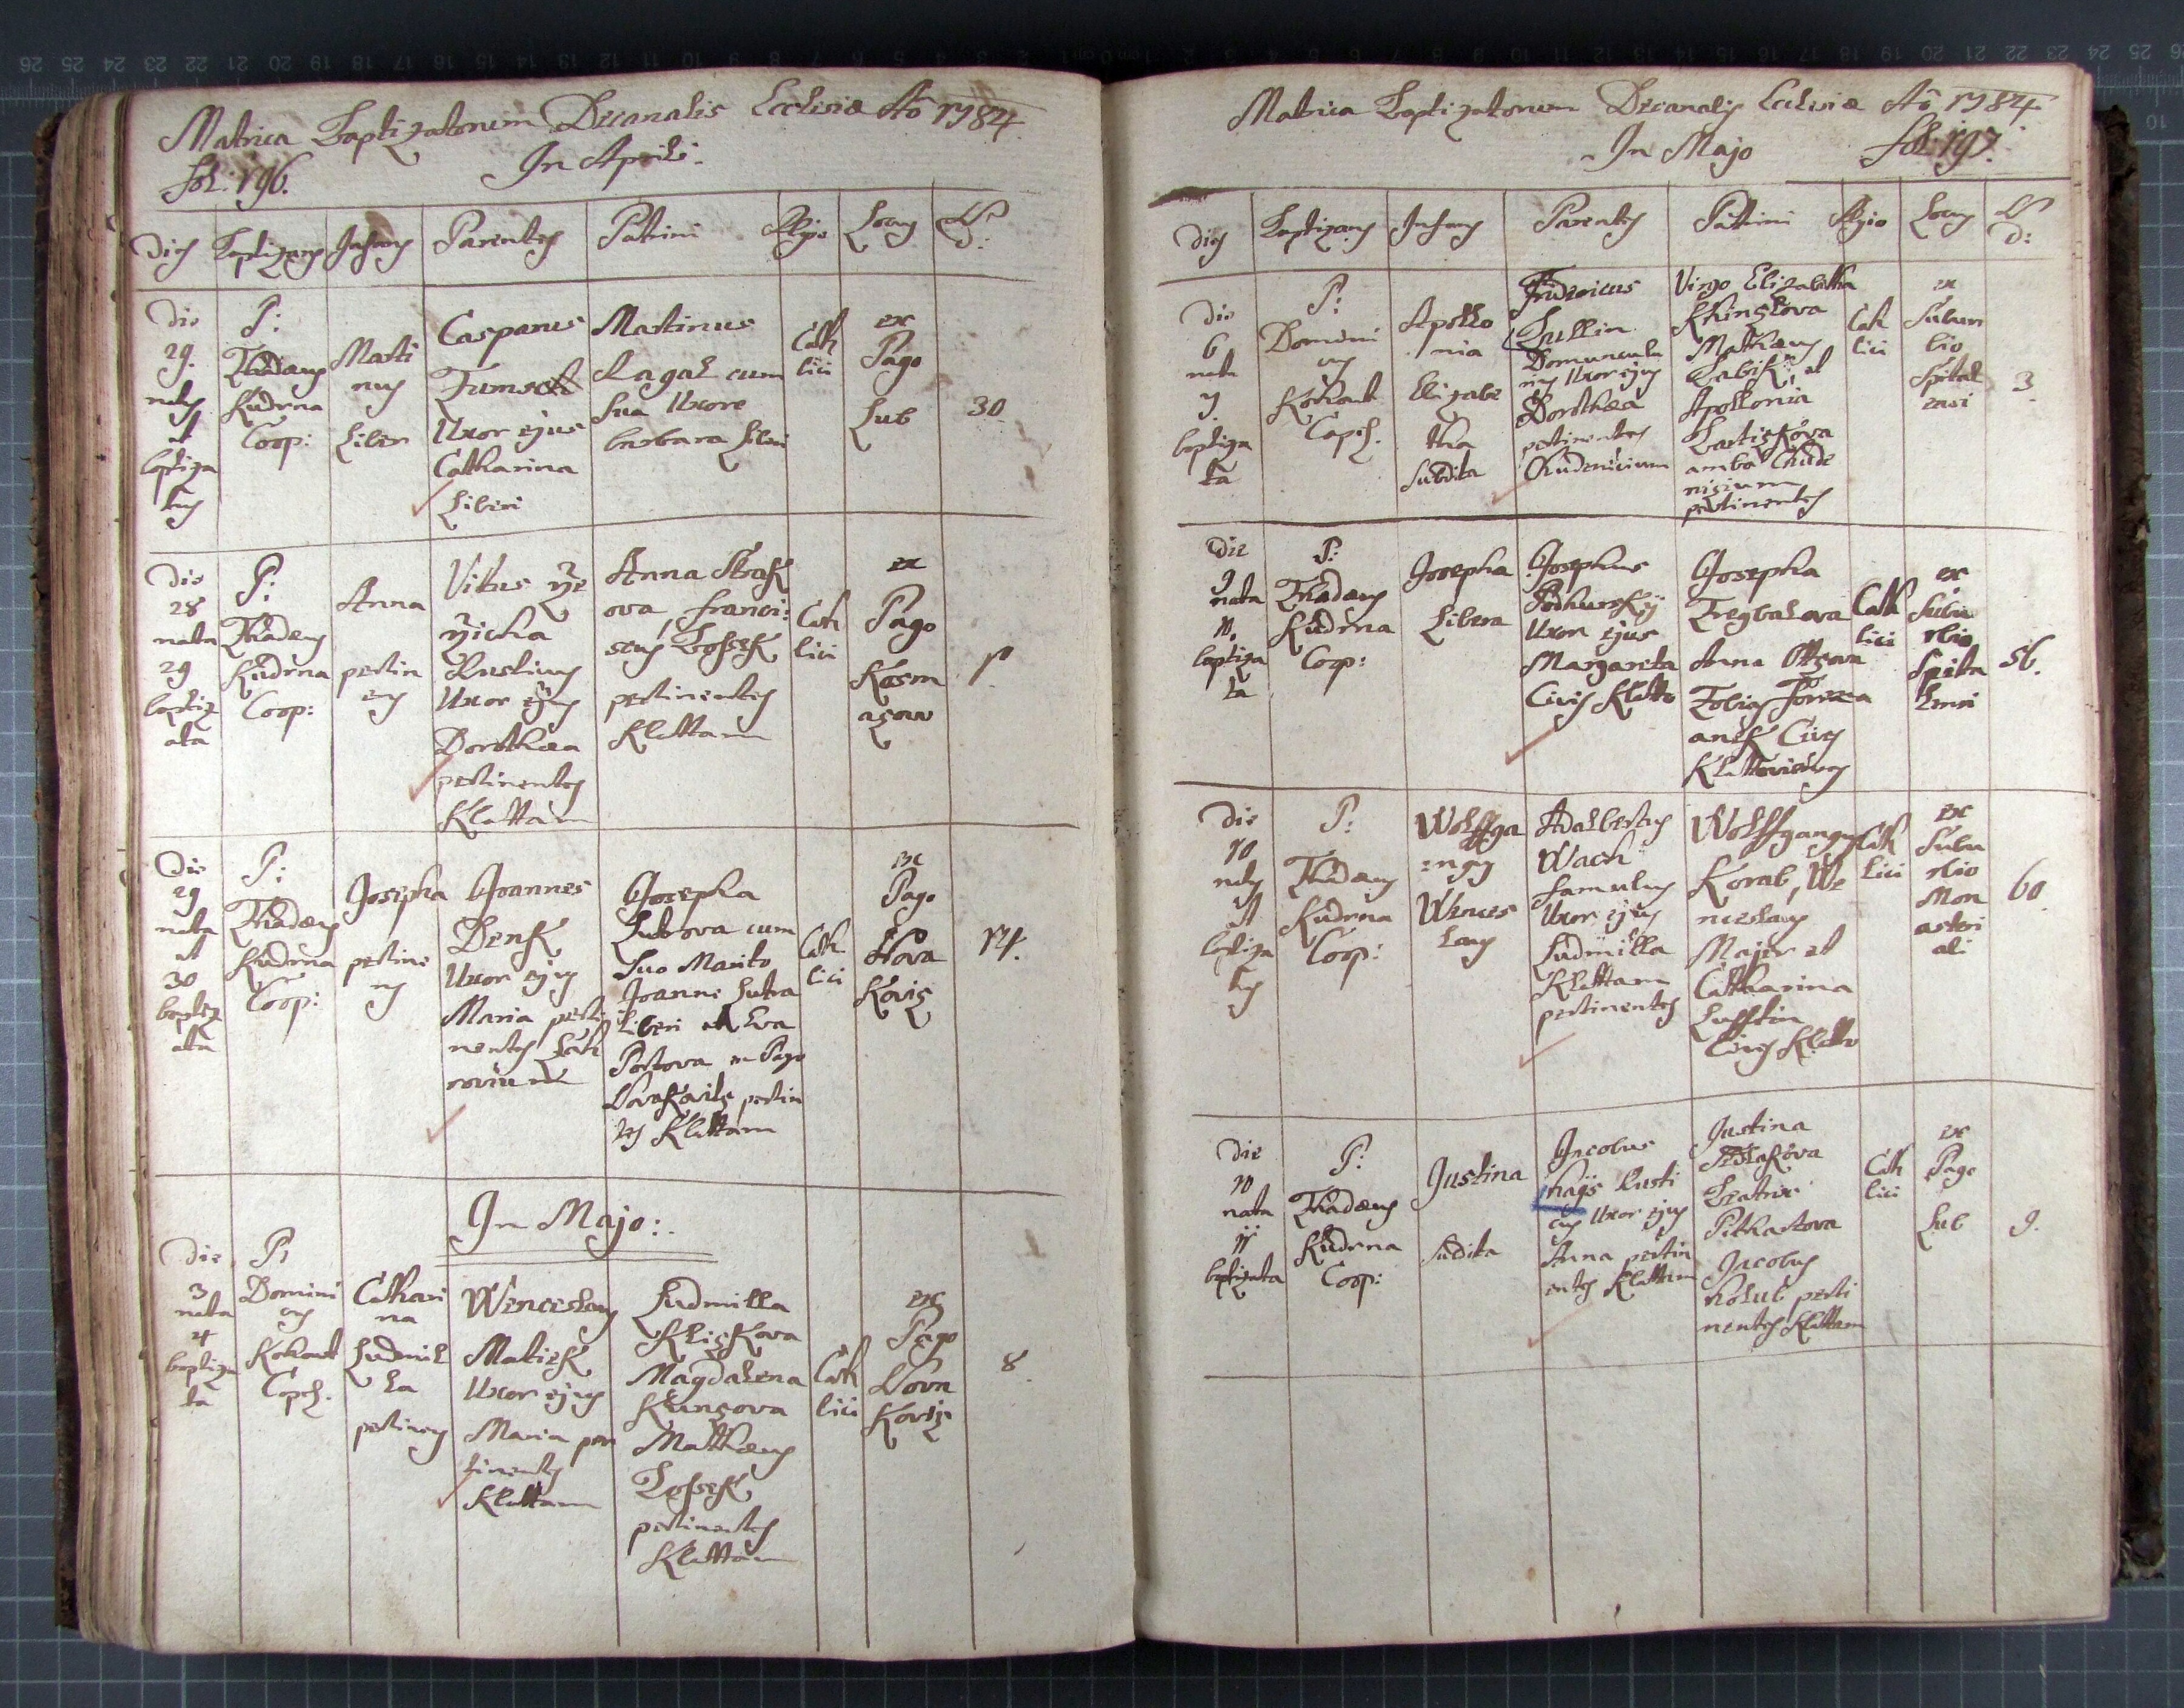 Matrica Baptizatorum Decanalis Ecclesiæ Aõ 1784
fol: 196. In Aprili.
Dies Baptizans Infans Parentes Patrini Rligio Locus N:
die
29.
natus
et
baptiza
tus
P:
Thadæus
Kudrna
Coop:
Marti
nus
Liber
Casparus
Uxor ejus
Catharina
Liberi
Martinus
Ragal cum
sua Uxore
barbara Liberi
Cath
lici
ex
Pago
Lub
30
die
28
nata
29
baptiz
ata
P:
Thadæus
Kudrna
Coop:
Anna
pertin
ens
Vitus
Rusticus
Uxor ejus
Dorothea
pertinentes
Klattam
Anna
ova, franci:
scus Bossek
pertinentes
Klattam
Cath
lici
ex
Pago
Kosm
açow
1
die
29
nata
et
30
baptiz
ata
P:
Thadæus
Kudrna
Coop:
Josepha
pertine
ns
Joannes
Denk
Uxor ejus
Maria perti
nentes
Josepha
Sutrova cum
Suo Marito
Joanne Sutra
Liberi et Eva
ex Pago
pertin
tes Klattam
Cath
lici
ex
Pago
Nova
Koviç
14.
In Majo:.
die
3
nata
4
baptiza
ta
P:
Domini
cus
Kohaut
Capel.
Cathari
na
Ludmil
la
pertinens
Wenceslaus
Matiek
Uxor ejus
Maria per
tinentes
Klattam
Ludmilla
Kliçkova
Magdalena
Kunçova
Mathæus
Bossek
pertinentes
Klattam
Cath
lici
ex
Pago
Nova
Koviç
8
Matrica Baptizatorum Decanalis Ecclesiæ Aõ 1784
In Majo fol: 197.
dies Baptizans Infans Parentes Patrini Rligio Locus N
d:
die
6
nata
7.
baptiza
ta
P:
Domini
cus
Kohaut
Capel.
Apollo
nia
Elizabe
tha
Subdita
Fridericus
Domuncula
rius Uxor ejus
Dorothea
pertinentes
Chudenicium
Virgo Elizabetha
Mathæus
et
Apollonia
ambo Chude
nicium
pertinentes
Cath
lici
ex
Suburr
bio
Spital
ensi
3
die
9
nata
10.
baptiza
ta
P:
Thadæus
Kudrna
Coop:
Josepha
Libera
Josephus
Podhurskÿ
Uxor ejus
Margareta
Civis Klatto
Josepha
Tregbalova
Anna
Tobias
Cives
Klattovienses
Cath
lici
ex
Subu
rbio
Spita
lensi
56.
die
10
natus
et
baptiza
tus
P:
Thadæus
Kudrna
Coop:
Wolffga
ngus
Wences
laus
Adalbertus
Wach
famulus
Uxor ejus
Ludmilla
Klattam
pertinentes
Wolffgangus
Korab, We
nceslaus
Majer et
Catharina
Cives Klatto
Cath
lici
ex
Subu
rbio
Mon
asteri
ali
60
die
10
nata
11
baptizata
P:
Thadæus
Kudrna
Coop:
Justina
Subdita
Jacobus
Rusti
cus Uxor ejus
Anna pertin
entes Klattam
Justina
Beatrix
Pithartova
Jacobus
Holub perti
nentes Klattam
Cath
lici
ex
Pago
Lub
9.